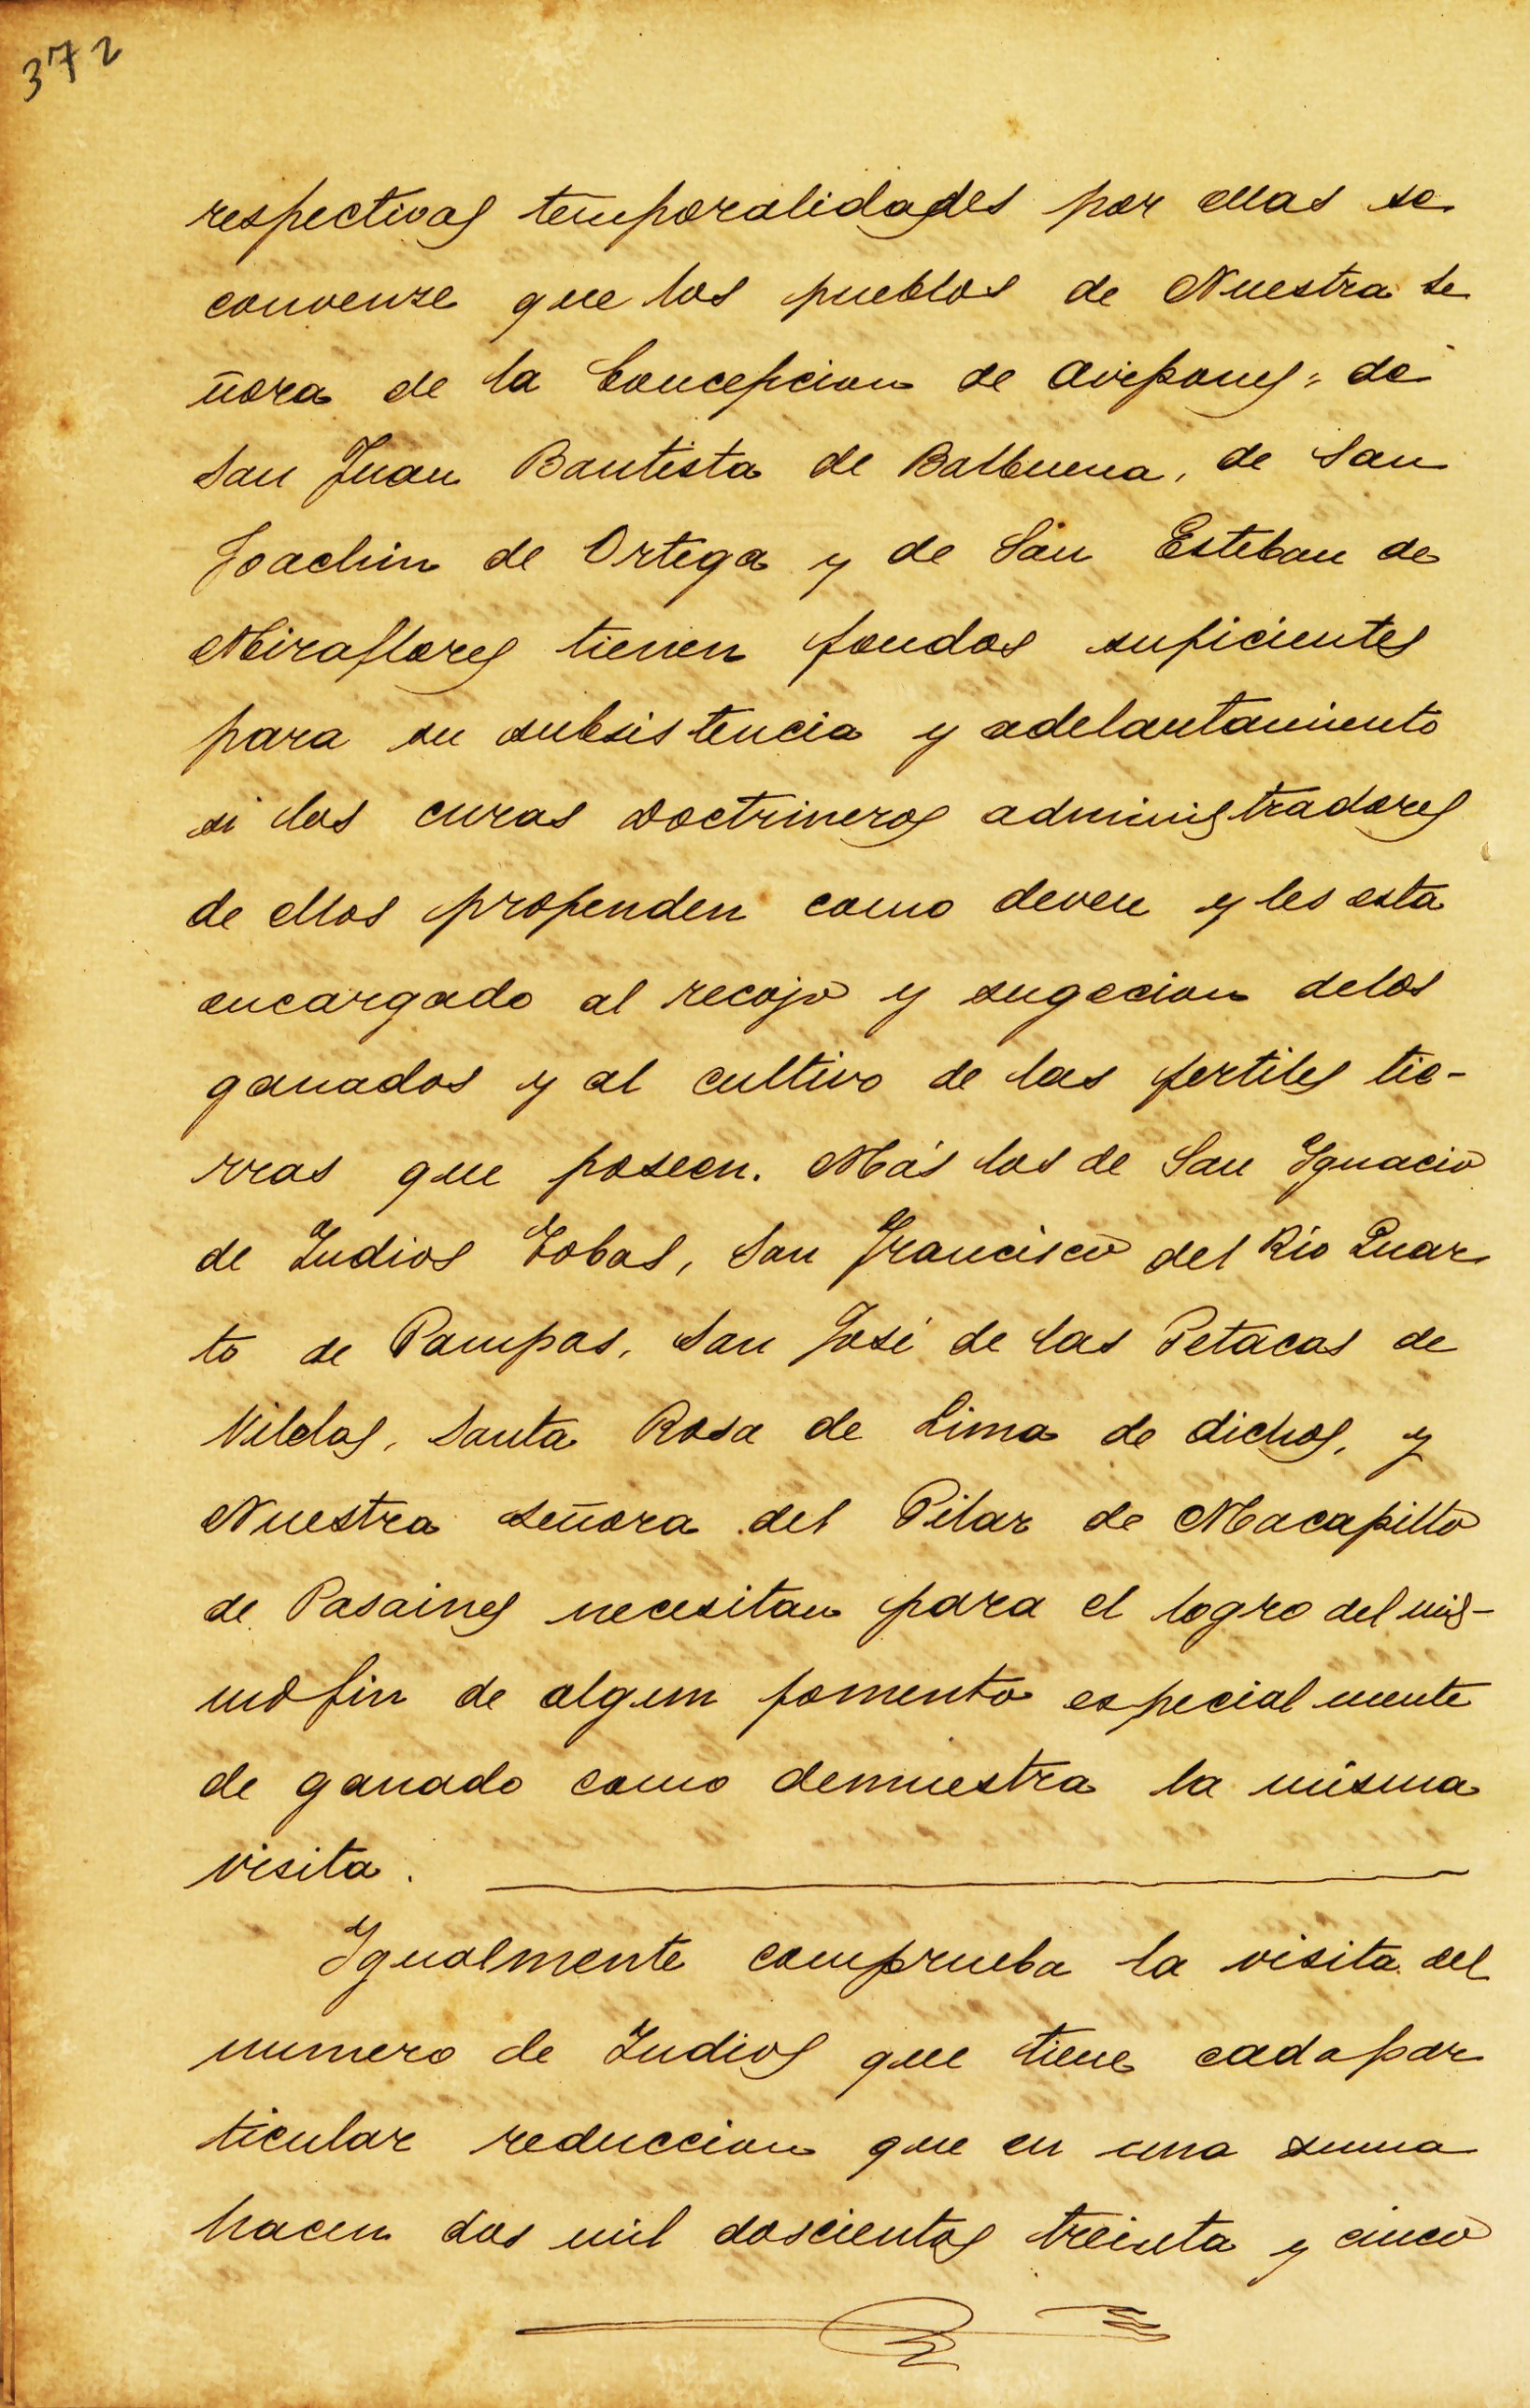 372
respectivas temporalidades por ellas se
convenze que los pueblos de Nuestra Se
ñora de la Concepcion de Avipones, de
San Juan Bautista de Balbuena, de San
Joachin de Ortega y de San Esteban de
Miraflores tienen fondos suficientes
para su subsistencia y adelantamiento
si los curas Doctrineros administradores
de ellos propenden como deven y les esta
encargado al recojo y sugecion delos
ganados y al cultivo de las fertiles tie-
rras que poseen. Más los de San Ignacio
de Indios Tobas, San Francisco del Rio Quar
to de Pampas, San José de las Petacas de
Vilelas, Santa Rosa de Lima de dichos, y
Nuestra Señora del Pilar de Macapillo
de Pasaines necesitan para el logro del mis-
mo fin de algun fomento especialmente
de ganado como demuestra la misma
visita.
Igualmente comprueba la visita del
numero de Indios que tiene cada par
ticular reduccion que en una suma
hacen dos mil doscientos treinta y cinco